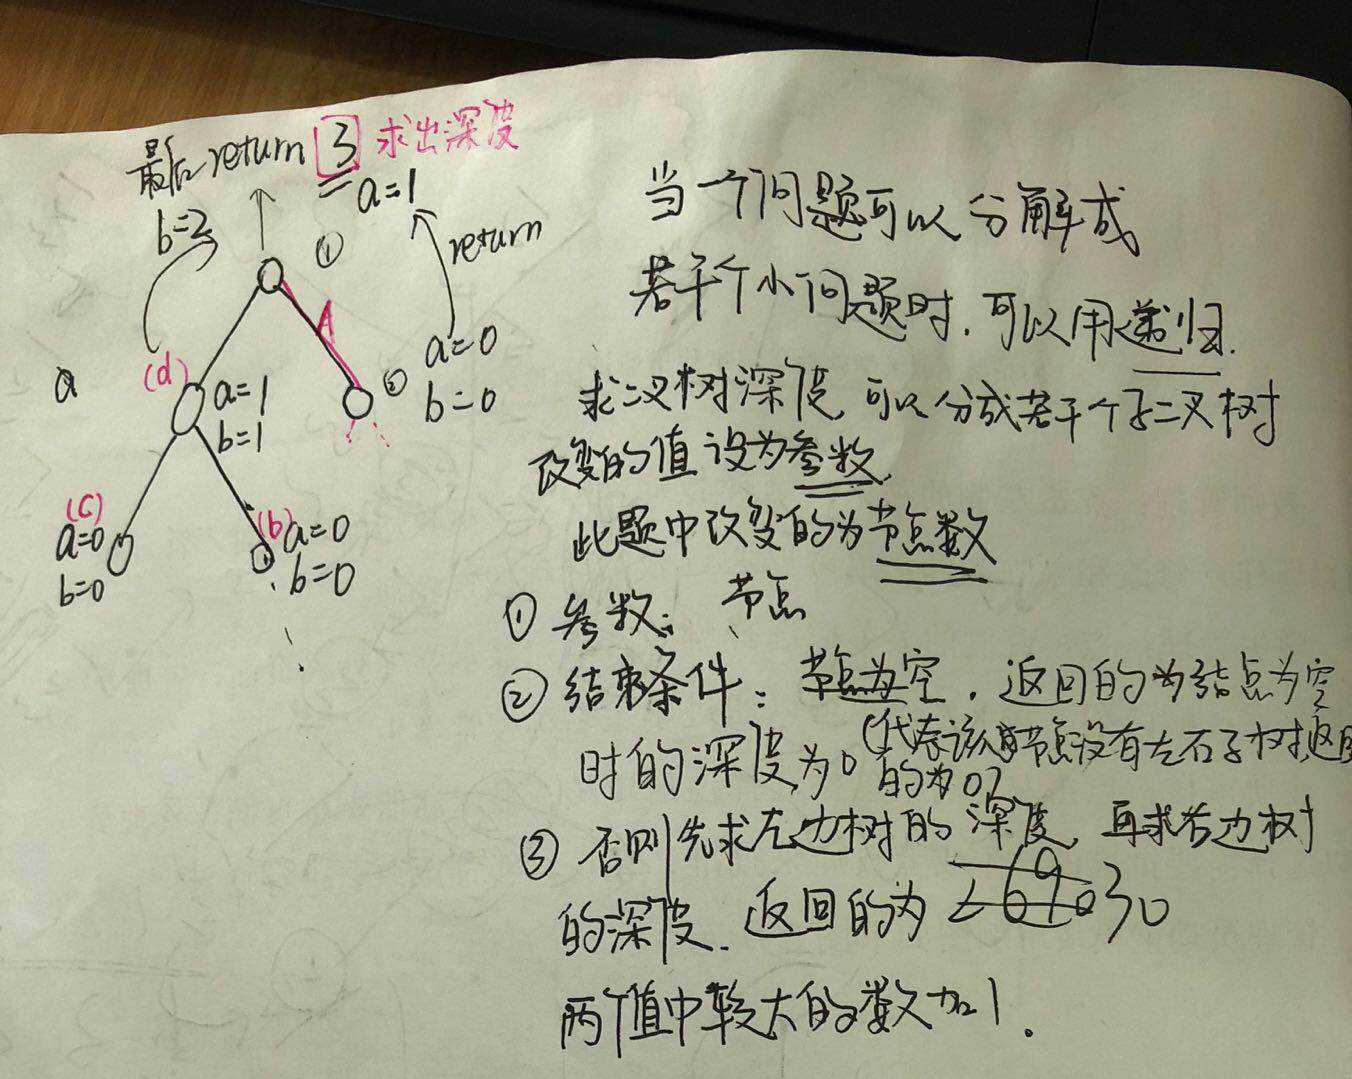 最后return 3 求出深度
b=2
a=1
①
return
a
(d)
a=1
b=1
②
a=0
b=0
(c)
a=0
b=0
(b)
a=0
b=0
当一个问题可以分解成
若干个小问题时,可以用递归.
求二叉树深度,可以分成若干个子二叉树
改变的值设为参数,
此题中改变的为节点数
① 参数: 节点
② 结束条件: 节点为空,返回的为结点为空
时的深度为0(代表该节点没有左右子树,返回
的为0)
③ 否则先求左边树的深度,再求右边树
的深度.返回的为
两个值中较大的数加1.